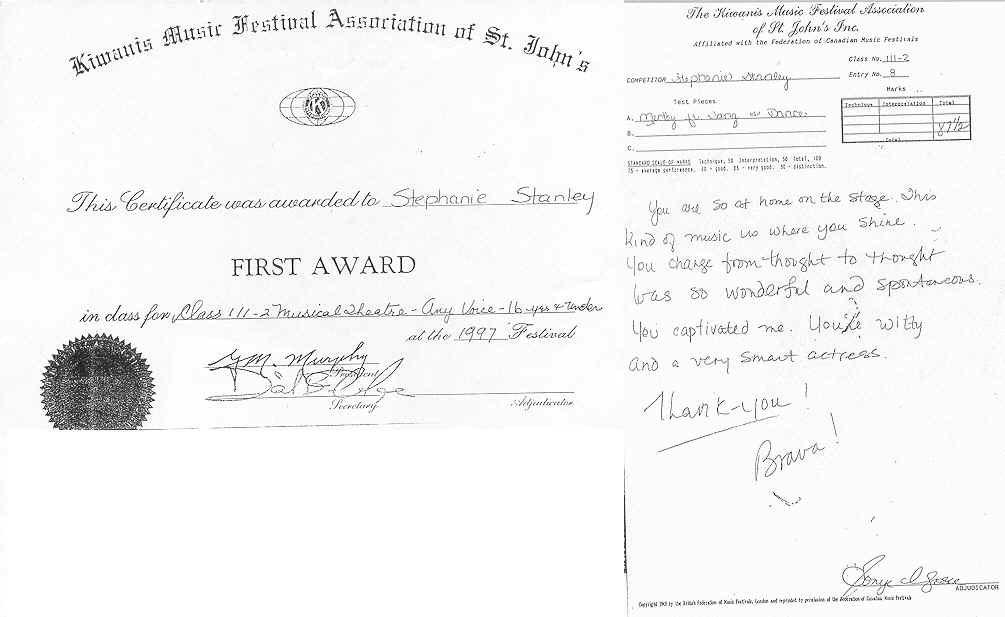 Kiwanis Music Festival Association of St. John's
This Certificate was awarded to Stephanie Stanley
FIRST AWARD
in class for Class 111-2 Musical Theatre - Any Voice - 16 yrs & Under
at the 1997 Festival
G.M. Murphy
President
Secretary
Adjudicator
The Kiwanis Music Festival Association
of St. John's Inc.
Affiliated with the Federation of Canadian Music Festivals
Class No. 111-2
COMPETITOR Stephanie Stanley
Entry No. 8
Marks
Test Pieces
Technique Interpretation Total
A. Song Dance
87 1/2
B.
C.
Total
STANDARD SCALE OF MARKS Technique, 50 Interpretation, 50 Total, 100
75 - average performance. 80 - good. 85 - very good. 90 - distinction.
You are so at home on the stage. This
kind of music is where you shine.
You change from thought to thought
was so wonderful and spontaneous.
You captivated me. You're witty
and a very smart actress.
Thank-you!
Brava!
ADJUDICATOR
Copyright by the British Federation of Music Festivals, London and reprinted by permission of the Federation of Canadian Music Festivals